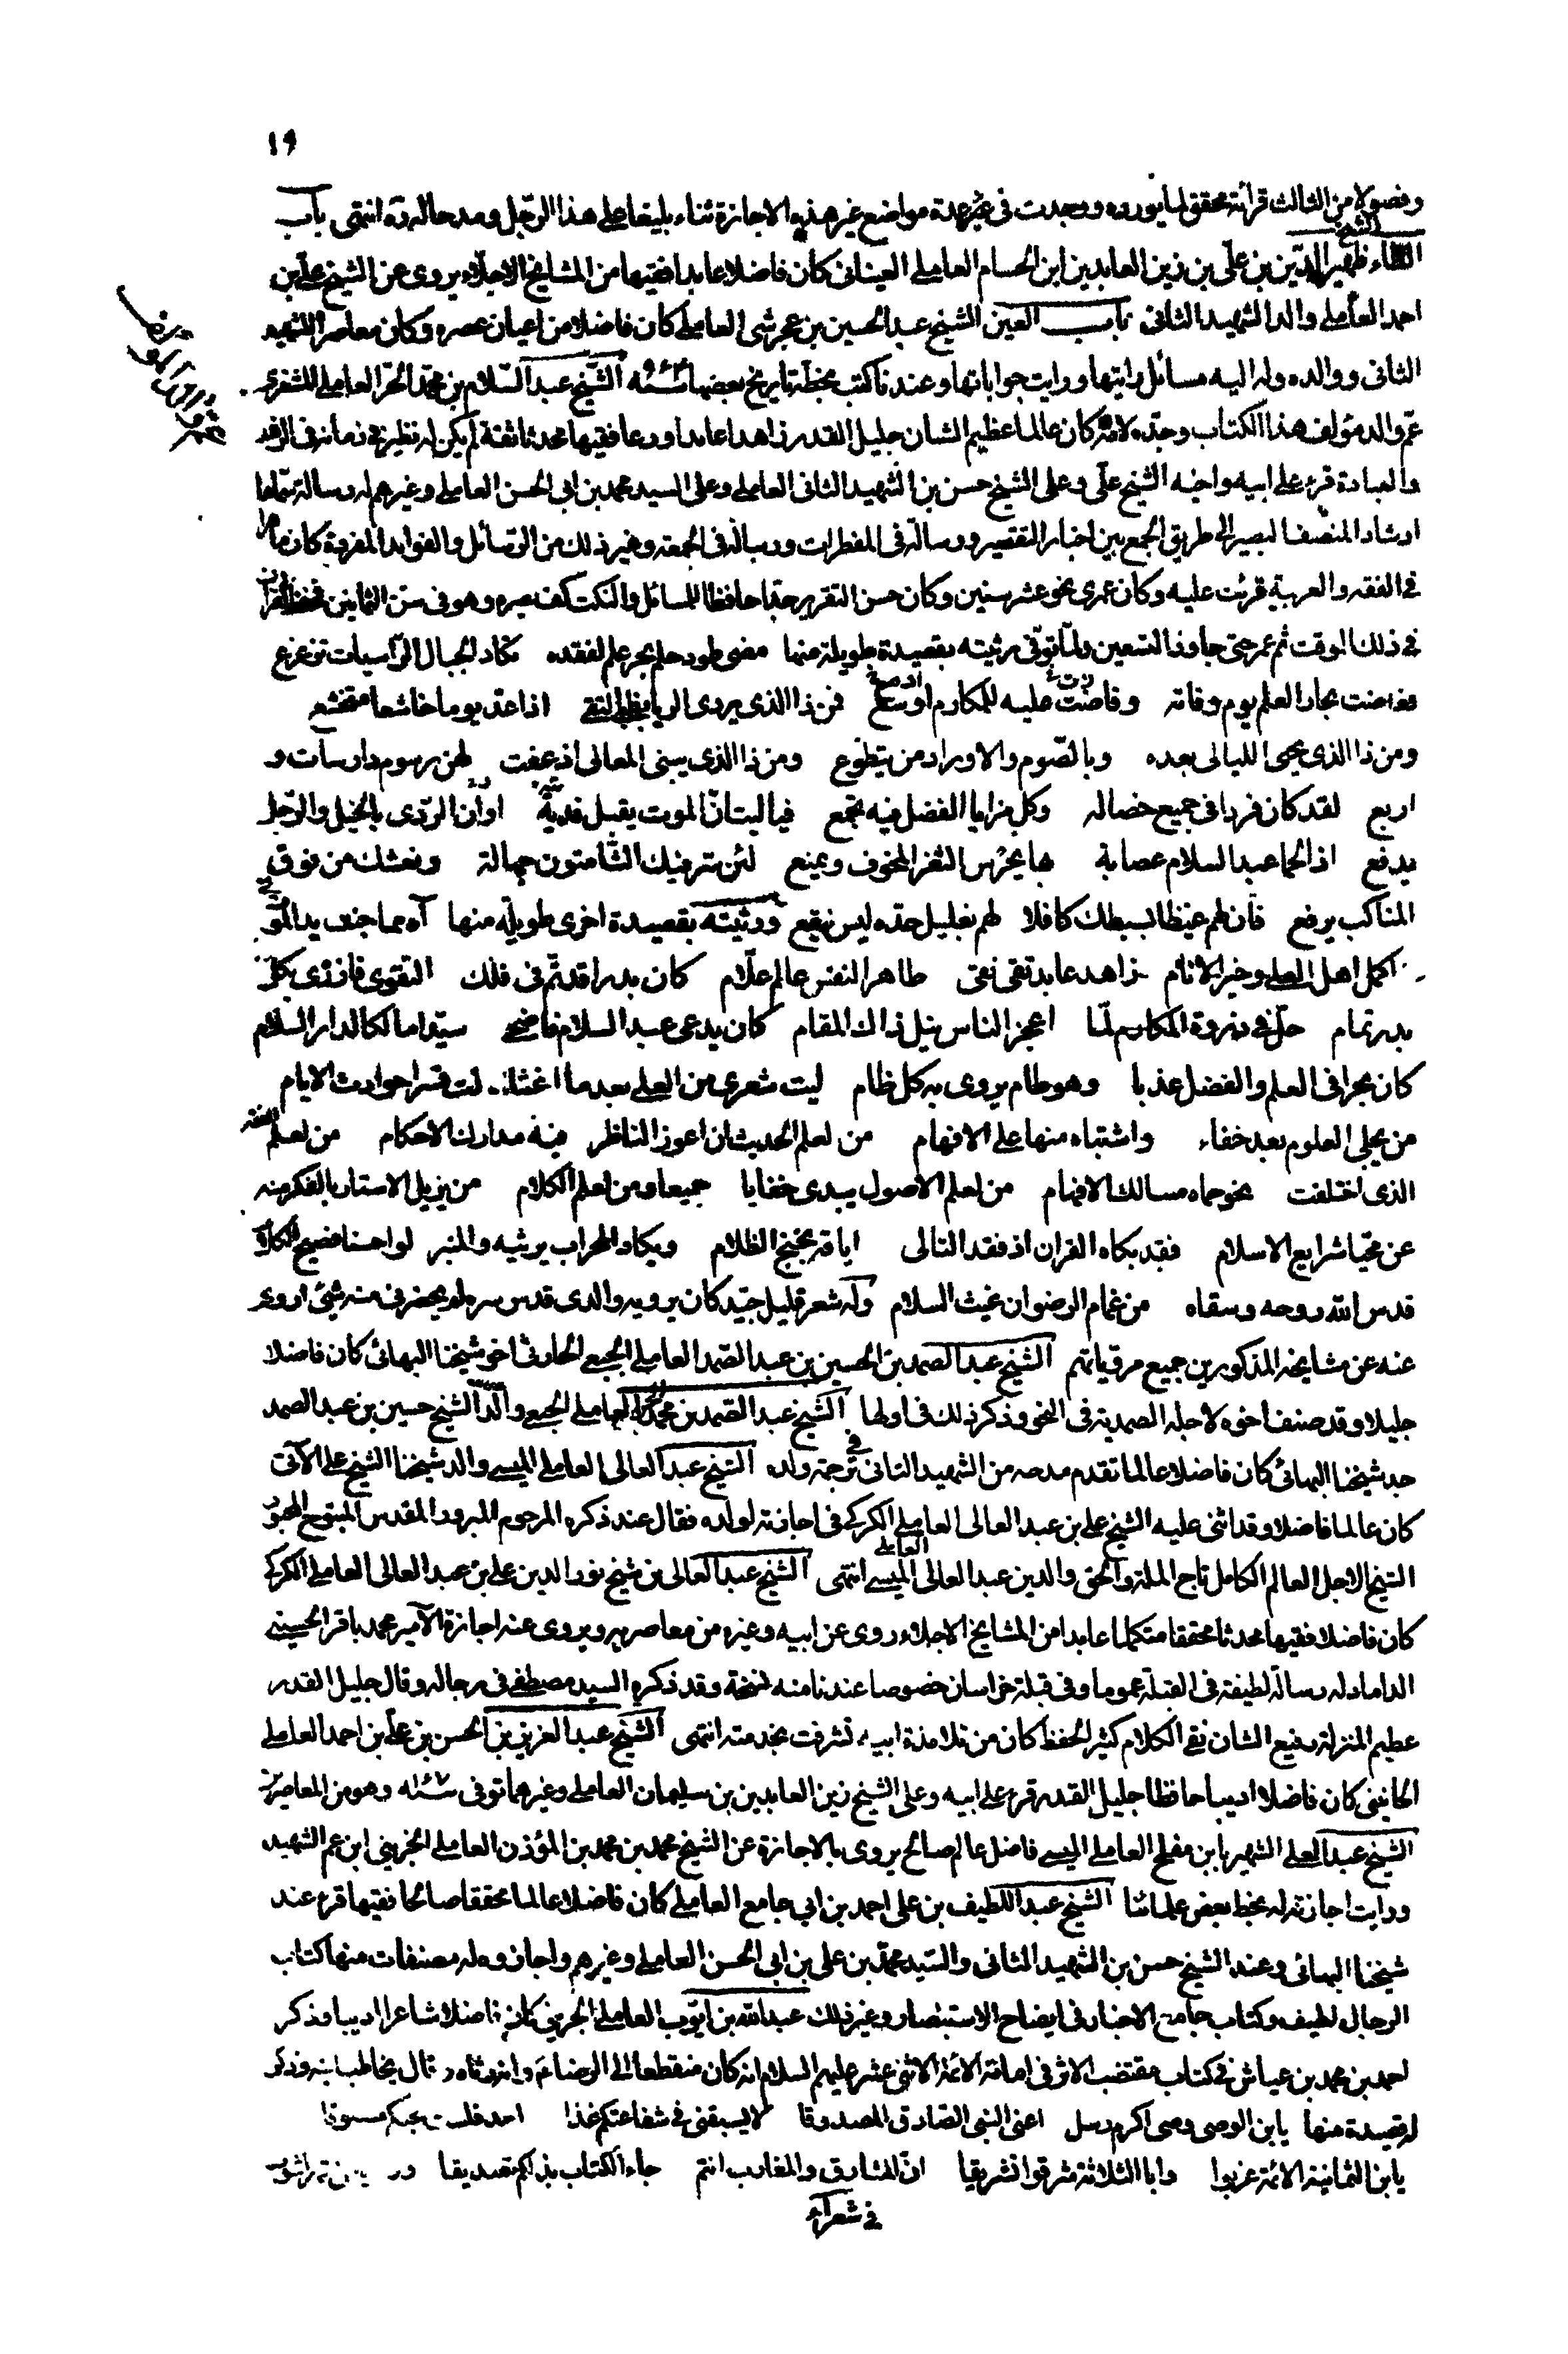 ١٩
وفصولا من الثالث قرائة محقق لما يورده ووجدت في عدة مواضع غير هذه الاجازة ثناء بليغا على هذا الرجل ومدحا له ره انتهى باب
الظاء الشيخ ظهير الدين بن علي بن زين العابدين ابن الحسام العاملي العيناثي كان فاضلا عابدا فقيها من المشايخ الاجلاء يروى عن الشيخ علي بن
احمد العاملي والد الشهيد الثاني باب العين الشيخ عبد الحسين بن العاملي كان فاضلا من اعيان عصره وكان معاصر الشهيد
الثاني ووالده وله اليه مسائل رايتها ورايت جواباتها وعندنا كتب بخطه تاريخ بعضها الشيخ عبد السلام بن محمد الحر العاملي المشغرى
عم والد مؤلف هذا الكتاب وجده لامه كان عالما عظيم الشان جليل القدر زاهدا عابدا ورعا فقيها محدثا ثقة لم يكن له نظير في زمانه في الزهد
والعبادة قرء على ابيه واخيه الشيخ علي وعلى الشيخ حسن بن الشهيد الثاني العاملي وعلى السيد محمد بن ابي الحسن العاملي وغيرهم له رسالة سماها
ارشاد المنصف البصير الى طريق الجمع بين اخبار التقصير ورسالة في المفطرات ورسالة في الجمعة وغير ذلك من الرسائل والفوايد المفردة كان ماهرا
في الفقه والعربية قرئت عليه وكان عمرى نحو عشر سنين وكان حسن التقرير جدا حافظا للمسائل والنكت كف بصره وهو في سن الثمانين فحفظ القرآن
في ذلك الوقت ثم عمر حتى جاوز التسعين ولما توفى رثيته بقصيدة طويلة منها مضى طود حلم بحر علم لفقده تكاد الجبال الراسيات تزعزع
فغاضت بحار العلم يوم وفاته وفاضت عليه للمكارم ادمع فمن ذا الذى يردى اذا عد يوما خاشعا متخشع
ومن ذا الذى يحيى الليالى بعده وبالصوم والاوراد من يتطوع ومن ذا الذى يبنى المعالى اذ عفت لهن رسوم دارسات و
اربع لقد كان فردا في جميع خصاله وكل مزايا الفضل فيه تجمع فيا ليت ان الموت يقبل فدية او ان الردى بالخيل والرجل
يدفع اذا لحما عبد السلام عصابة بها يحرس الثغر المخوف ويمنع لئن الشامتون جهالة ونعشك من فوق
المناكب يرفع فان لهم غيظا بسبطك كافلا لهم بغليل حده ليس ينقع ورثيته بقصيدة اخرى طويلة منها آه مما جنت يد الموت في
اكمل اهل العلى وخير الانام زاهد عابد تقى نقى طاهر النفس عالم علام كان بدرا قد تم في فلك التقوى فازرى بكل
بدر تمام حل في ذروة المكارم لما اعجز الناس نيل ذاك المقام كان يدعى عبد السلام فاضحى سيدا مالكا لدار السلام
كان بحرا في العلم والفضل عذبا وهو طام يروى به كل ظام ليت شعرى من العلى بعد ما قسرا حوادث الايام
من يجلى العلوم بعد خفاء واشتباه منها على الافهام من لعلم الحديث ان اعوز الناظر فيه مدارك الاحكام من لعلم الفقه
الذى اختلفت نحو حماه مسالك الافهام من لعلم الاصول يبدى خفايا جميعا ومن لعلم الكلام من يزيل الاستار بالفكر منه
عن محيا شرايع الاسلام فقد بكاه القران اذ فقد التالى اياته بجنح الظلام ويكاد المحراب يرثيه والمنبر لو احسنا فصيح الكلام
قدس الله روحه وسقاه من غمام الرضوان غيث السلام وله شعر قليل جيد كان يرويه والدى قدس سره ولم يحضرنى منه شئ اروى
عنه عن مشايخه المذكورين جميع مروياتهم الشيخ عبد الصمد بن الحسين بن عبد الصمد العاملي الجبعي الحارثي اخو شيخنا البهائي كان فاضلا
جليلا وقد صنف اخوه لاجله الصمدية في النحو وذكر ذلك في اولها الشيخ عبد الصمد بن محمد العاملي الجبعي والد الشيخ حسين بن عبد الصمد
جد شيخنا البهائي كان فاضلا عالما تقدم مدحه من الشهيد الثاني في ترجمة ولده الشيخ عبد العالى العاملي الميسي والد شيخنا الشيخ علي الآتى
كان عالما فاضلا وقد اثنى عليه الشيخ علي بن عبد العالى العاملي الكركي في اجازته لولده فقال عند ذكره المرحوم المبرور المقدس المتوج المحبور
الشيخ الاجل العالم الكامل تاج الملة والحق والدين عبد العالى العاملي الميسي انتهى الشيخ عبد العالى بن شيخ نور الدين علي بن عبد العالى العاملي الكركي
كان فاضلا فقيها محدثا محققا متكلما عابدا من المشايخ الاجلاء روى عن ابيه وغيره من معاصريه ويروى عنه اجازة الامير محمد باقر الحسيني
الداماد له رسالة لطيفة في القبلة عموما وفي قبلة خراسان خصوصا عندنا منه نسخة وقد ذكره السيد مصطفى في رجاله وقال جليل القدر
عظيم المنزلة رفيع الشان نقي الكلام كثير الحفظ كان من تلامذة ابيه تشرفت بخدمته انتهى الشيخ عبد العزيز بن الحسن بن علي بن احمد العاملي
الحانيني كان فاضلا اديبا حافظا جليل القدر قرء على ابيه وعلى الشيخ زين العابدين بن سليمان العاملي وغيرهما توفى سنة وهو من المعاصرين
الشيخ عبد العلي الشهير بابن مفلح العاملي الميسي فاضل عالم صالح يروى بالاجازة عن الشيخ محمد بن محمد بن المؤذن العاملي الجزيني ابن عم الشهيد
ورايت اجازته له بخط بعض علمائنا الشيخ عبد اللطيف بن علي احمد بن ابي جامع العاملي كان فاضلا عالما محققا صالحا فقيها قرء عند
شيخنا البهائي وعند الشيخ حسن بن الشهيد الثاني والسيد محمد بن علي بن ابي الحسن العاملي وغيرهم واجازوه له مصنفات منها كتاب
الرجال لطيف وكتاب جامع الاخبار في ايضاح الاستبصار وغير ذلك عبد الله بن ايوب العاملي الجزيني كان فاضلا شاعرا اديبا وذكر
احمد بن محمد بن عياش في كتاب مقتضب الاثر في امامة الائمة الاثنى عشر عليهم السلام انه كان منقطعا الى الرضا ع وانه رثاه وقال يخاطب ابنه وذكر
له قصيدة منها يابن الوصى وصى اكرم مرسل اعنى النبى الصادق المصدوقا لا يسبقنى في شفاعتكم غدا احد فلست بحبكم مسبوقا
يابن الثمانية الائمة غربوا وابا الثلاثة شرقوا تشريقا ان المشارق والمغارب انتم جاء الكتاب بذلكم تصديقا
في شعراء